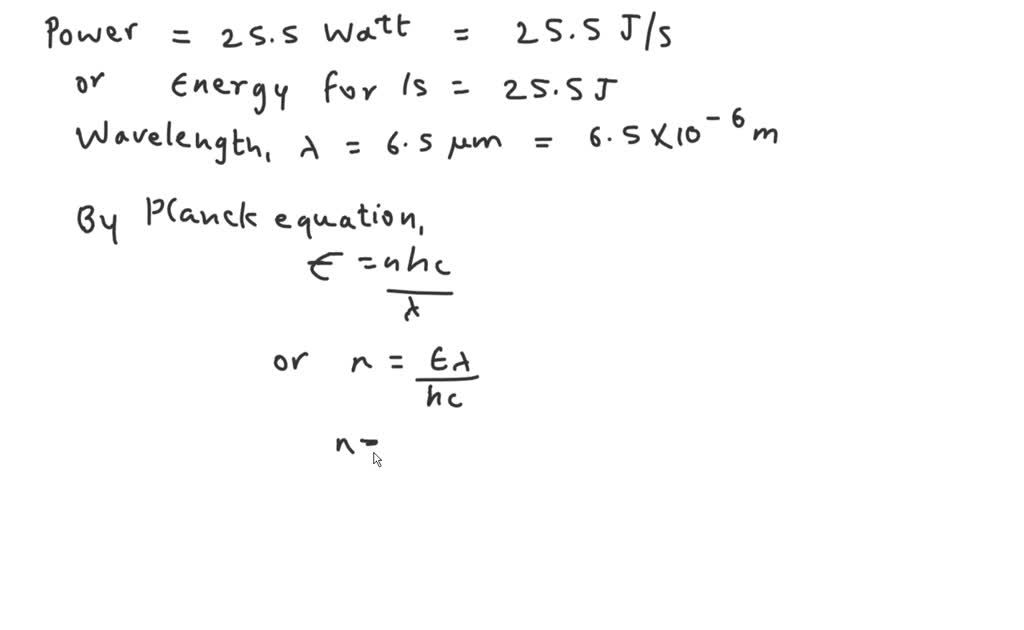 Power = 25.5 Watt = 25.5 J/s
or Energy for 1s = 25.5J
Wavelength, λ = 6.5 μm = 6.5 X 10⁻⁶ m
By Planck equation,
E = nhc
λ
or n = Eλ
hc
n =